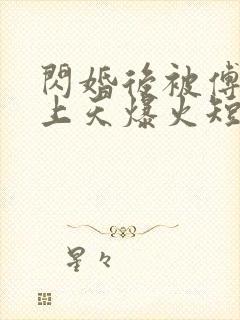 閃婚後被傅
上天爆火短
星々